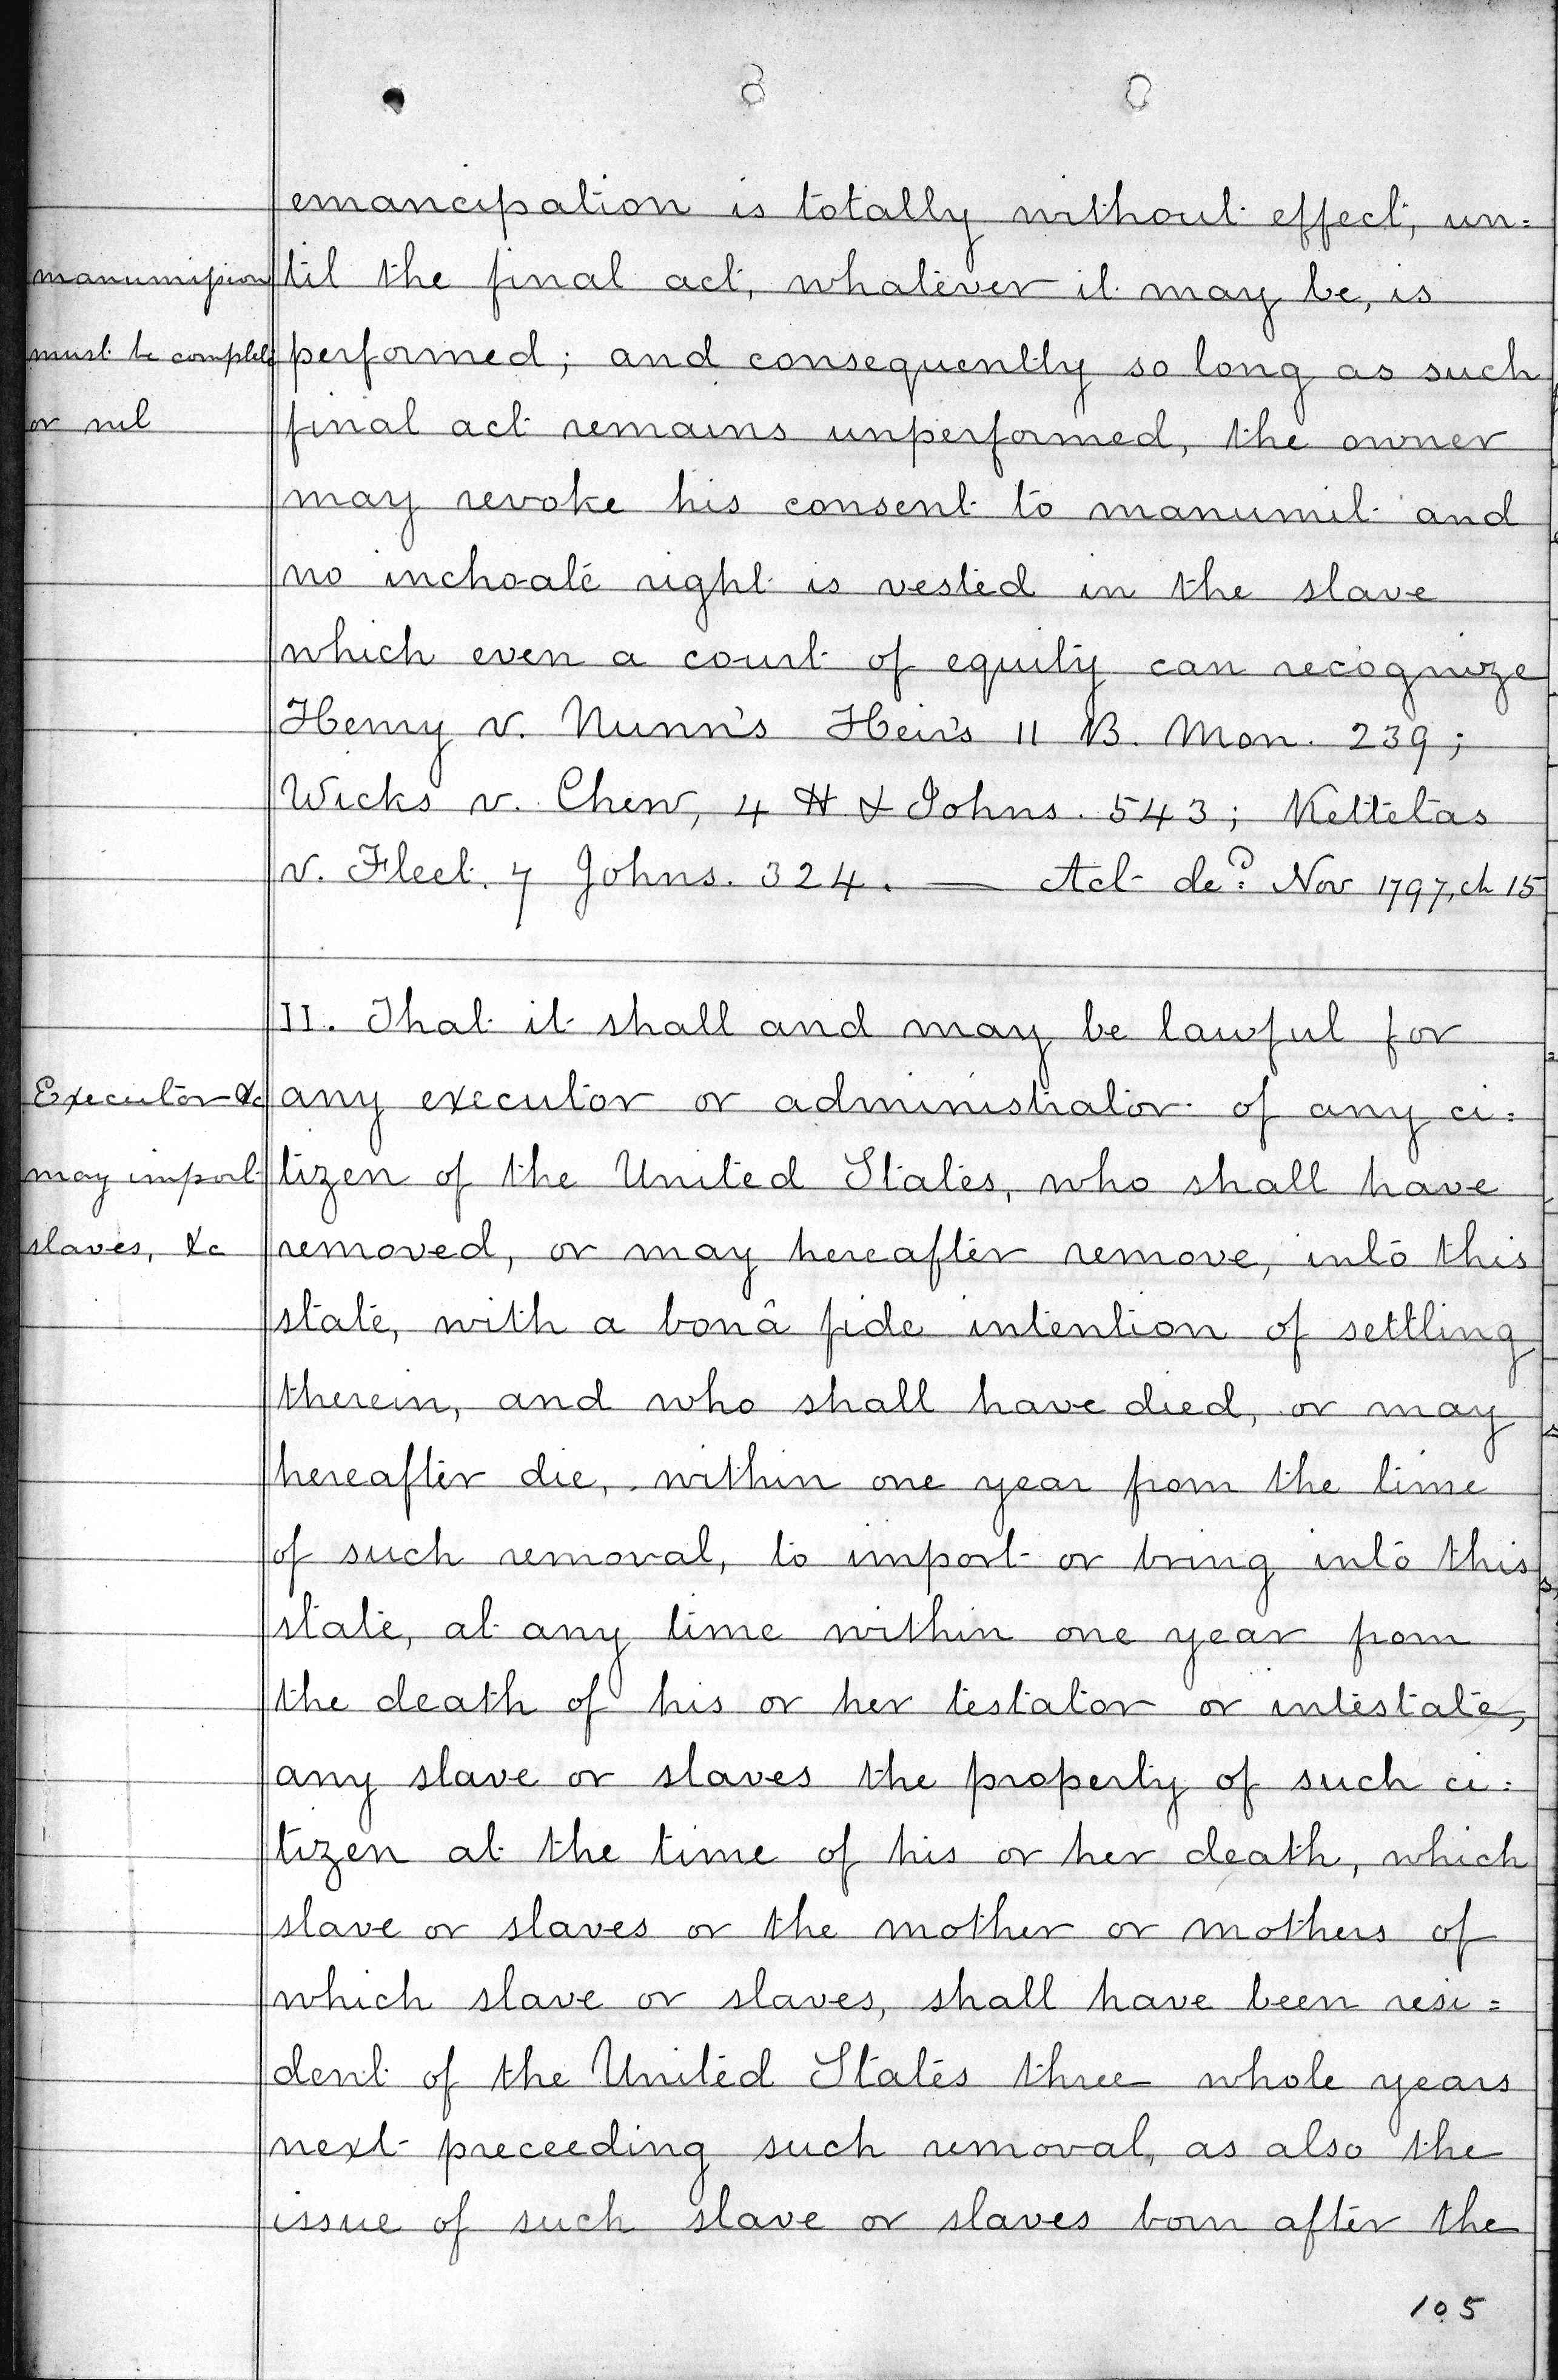 emancipation is totally without effect, un=
manumission til the final act, whatever it may be, is
must be complete performed; and consequently so long as such
or nul final act remains unperformed, the owner
may revoke his consent to manumit and
no inchoate right is vested in the slave
which even a court of equity can recognize
Henry v. Nunn's Heirs 11 B. Mon. 239;
Wicks v. Chew, 4 H & Johns. 543; Kettletas
v. Fleet. 7 Johns. 324. — Act de: Nov 1797, ch 15
II. That it shall and may be lawful for
Executor &c any executor or administrator of any ci=
may import tizen of the United States, who shall have
slaves, &c removed, or may hereafter remove, into this
state, with a bonâ fide intention of settling
therein, and who shall have died, or may
hereafter die, within one year from the time
of such removal, to import or bring into this
state, at any time within one year from
the death of his or her testator or intestate,
any slave or slaves the property of such ci=
tizen at the time of his or her death, which
slave or slaves or the mother or mothers of
which slave or slaves, shall have been resi=
dent of the United States three whole years
next preceeding such removal, as also the
issue of such slave or slaves born after the
105